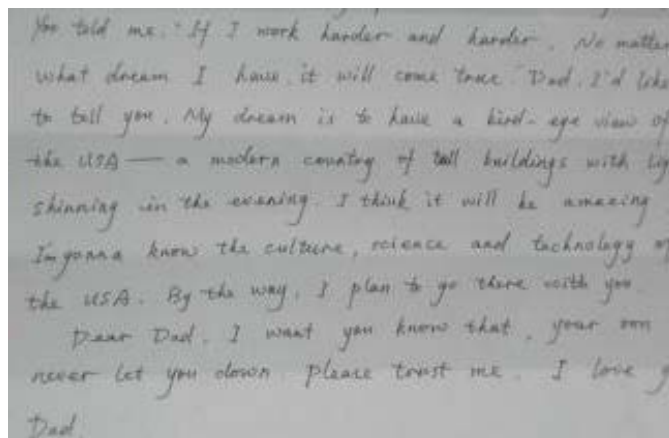 You told me. "If I work harder and harder. No matter
what dream I have, it will come true." Dad, I'd like
to tell you. My dream is to have a bird-eye view of
the USA — a modern country of tall buildings with
shinning in the evening. I think it will be amazing
I'm gonna know the culture, science and technology of
the USA. By the way, I plan to go there with you.
Dear Dad. I want you know that, your son
never let you down. Please trust me. I love
Dad